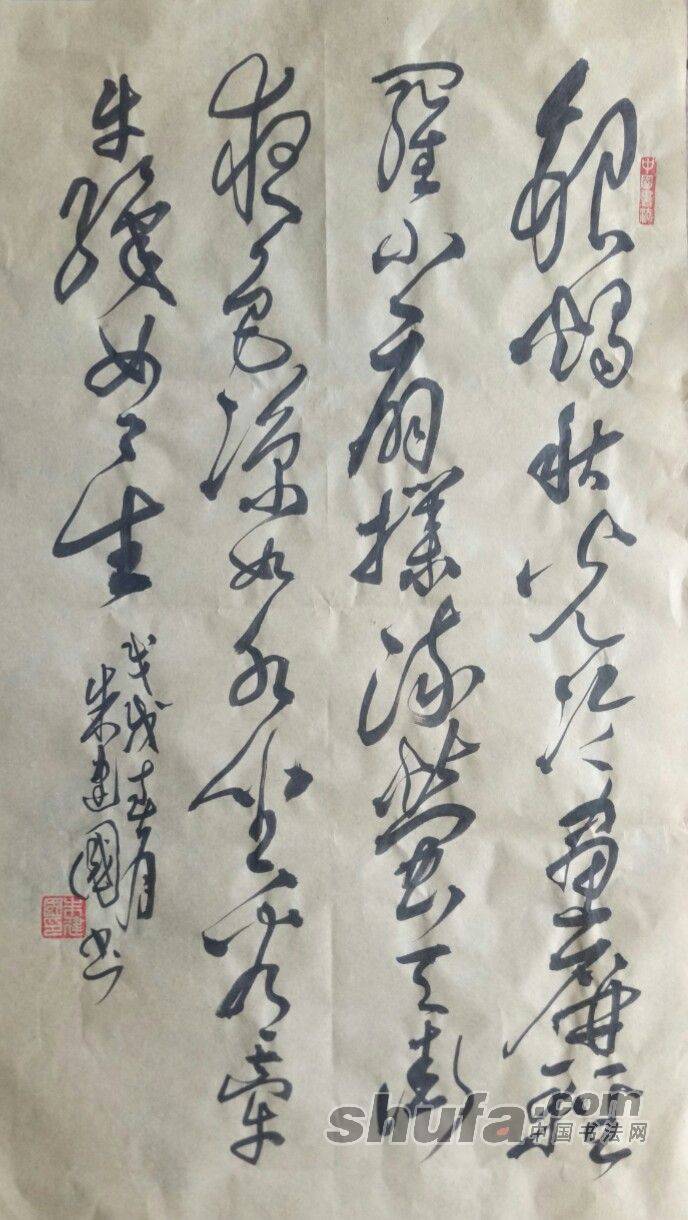 銀燭秋光冷畫屏輕
羅小扇撲流螢天街
夜色涼如水坐看牽
牛織女星
戊戌春月
朱建國書
shufa.com
中国书法网